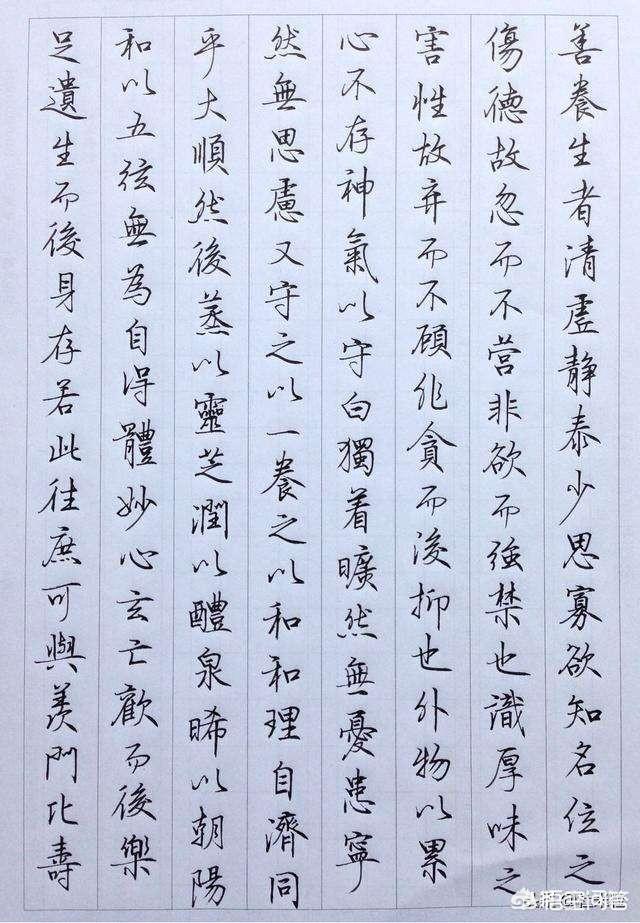 善養生者清虛靜泰少思寡欲知名位之
傷德故忽而不營非欲而強禁也識厚味之
害性故弃而不顧非貪而後抑也外物以累
心不存神氣以守白獨着曠然無憂患寧
然無思慮又守之以一養之以和和理自濟同
乎大順然後蒸以靈芝潤以醴泉晞以朝陽
和以五弦無為自得體妙心玄亡歡而後樂
足遺生而後身存若此往庶可與羨門比壽